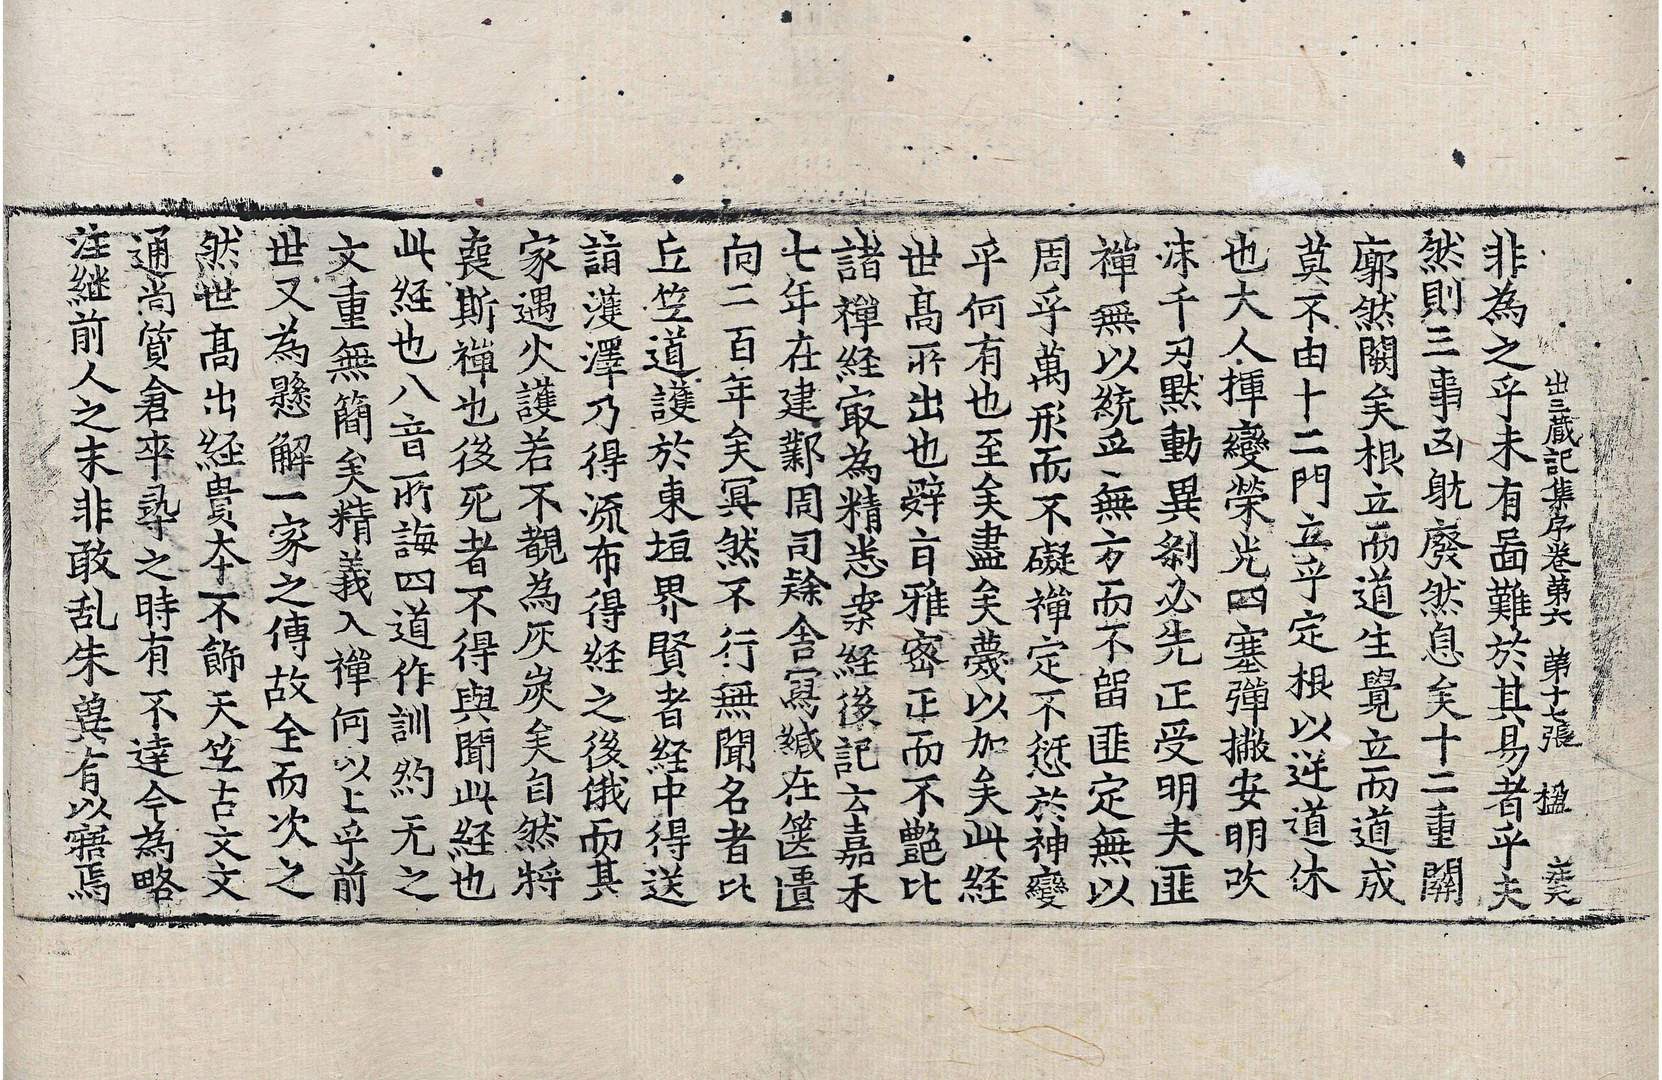 出三藏記集序卷第六 第十七張 楹
非為之乎未有啚難於其易者乎夫
然則三事凶躭廢然息矣十二重關
廓然闢矣根立而道生覺立而道成
莫不由十二門立乎定根以逆道休
也大人揮變榮光四塞彈撇安明吹
沫千刃默動異剎必先正受明夫匪
禪無以統乎無方而不留匪定無以
周乎萬形而不礙禪定不愆於神變
乎何有也至矣盡矣蔑以加矣此経
世髙所出也辝㫖雅密正而不艶比
諸禪経㝡為精悉案経後記云嘉禾
七年在建鄴周司隸舍寫緘在篋匵
向二百年矣冥然不行無聞名者比
丘竺道護於東垣界賢者経中得送
詣濩澤乃得流布得経之後俄而其
家遇火護若不覩為灰炭矣自然將
喪斯禪也後死者不得與聞此経也
此経也八音所誨四道作訓約无之
文重無簡矣精義入禪何以上乎前
世又為懸解一家之傳故全而次之
然世髙出経貴夲不飾天竺古文文
通尚質倉卒㝷之時有不達今為略
注継前人之末非敢乱朱兾有以寤焉